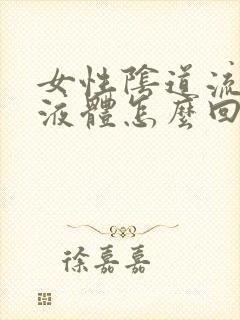 女性陰道流
液體怎麼回
徐嘉嘉